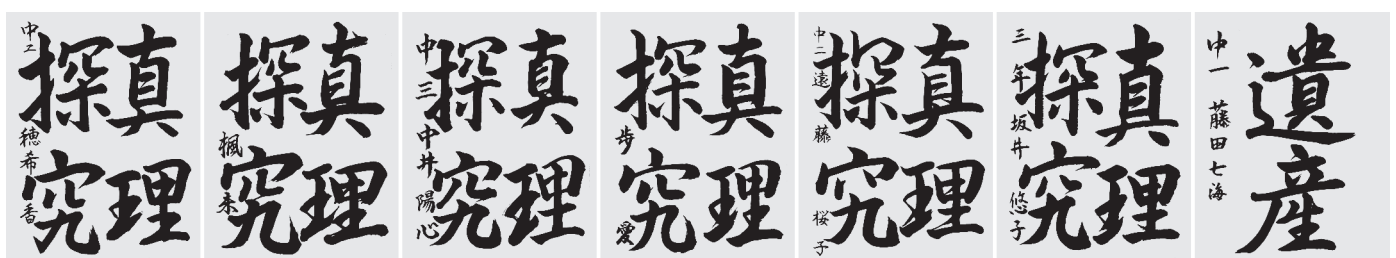 真理
探究
中二 穂希香
真理
探究
楓来
真理
探究
中三 中井陽心
真理
探究
歩愛
真理
探究
中二 遠藤桜子
真理
探究
三年 坂井悠子
遺産
中一 藤田七海